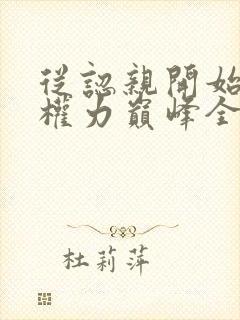 從認親開始
權力巔峰全
杜莉萍